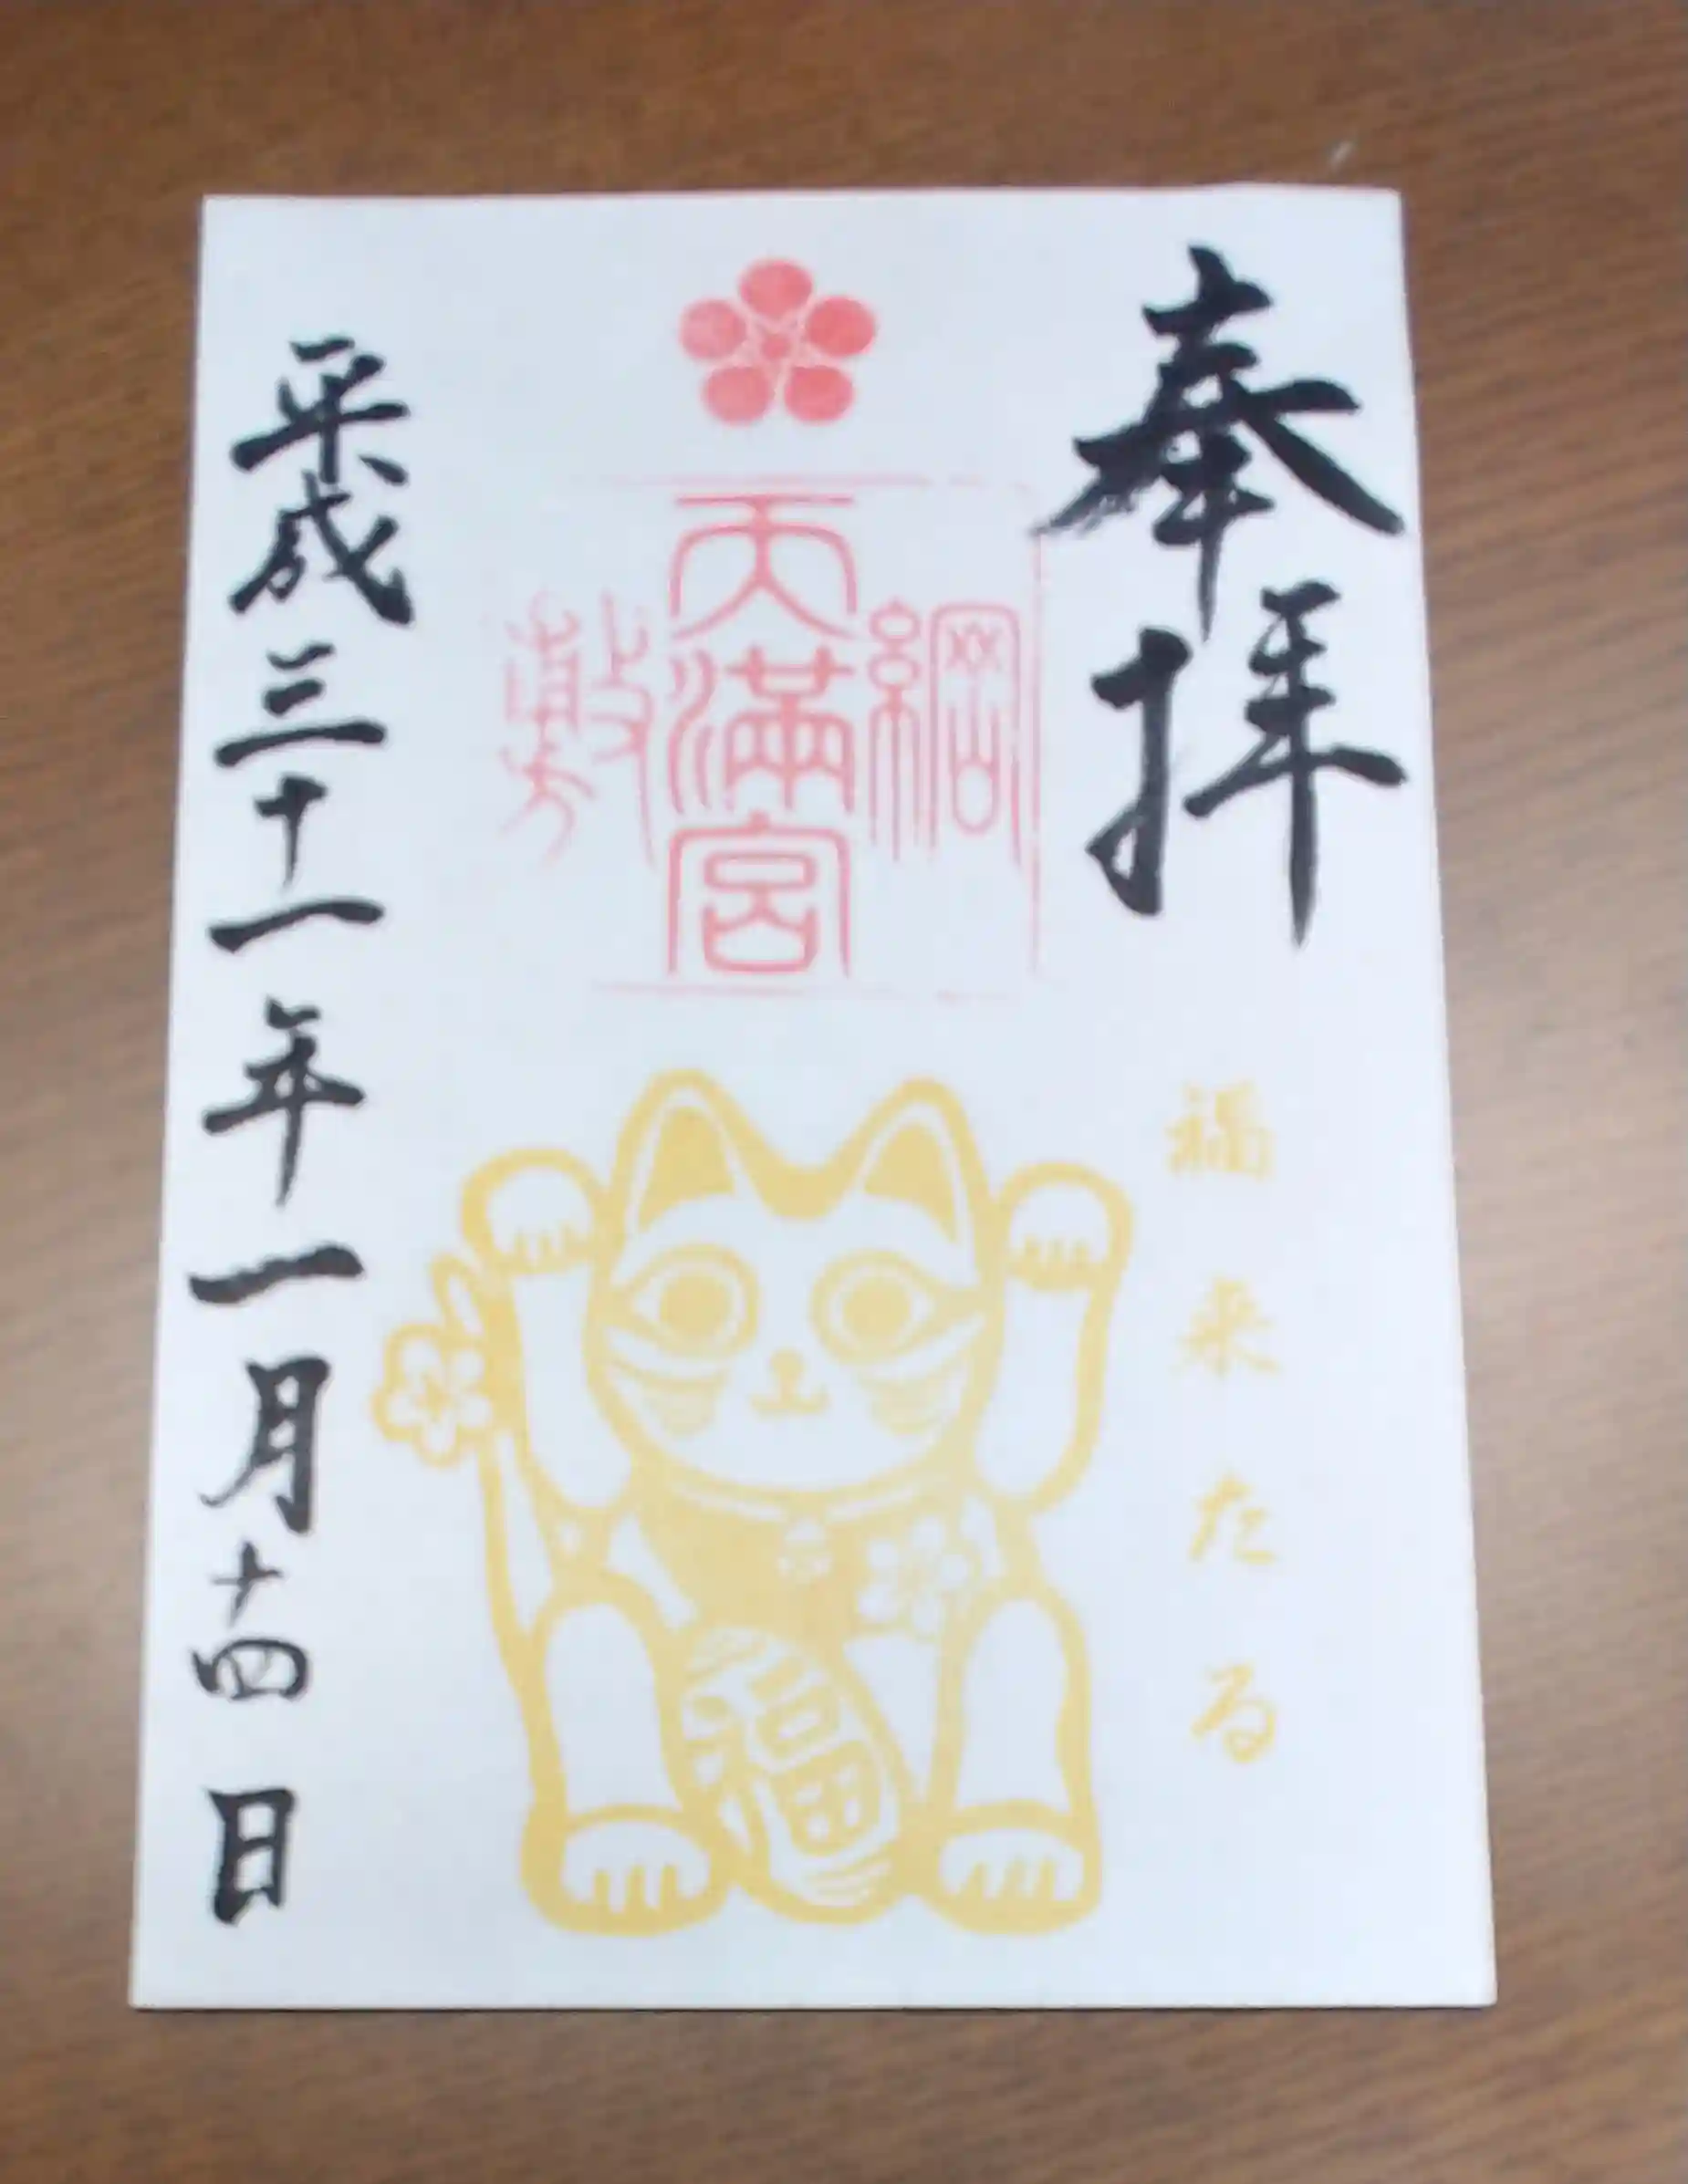 奉拝
福来たる
綱敷
天満宮
福
平成三十一年一月十四日